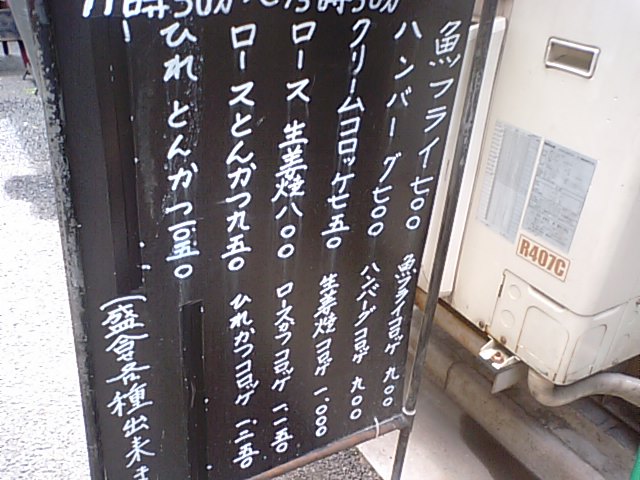 魚フライ七〇〇
ハンバーグ七〇〇
クリームコロッケ七五〇
ロース生姜焼八〇〇
ロースとんかつ九五〇
ひれとんかつ一〇五〇
魚フライコロッケ 九〇〇
ハンバーグコロッケ 九〇〇
生姜焼コロッケ 一、〇〇〇
ロースかつコロッケ 一、一五〇
ひれかつコロッケ 一、二五〇
(盛合各種出来ま
R407C